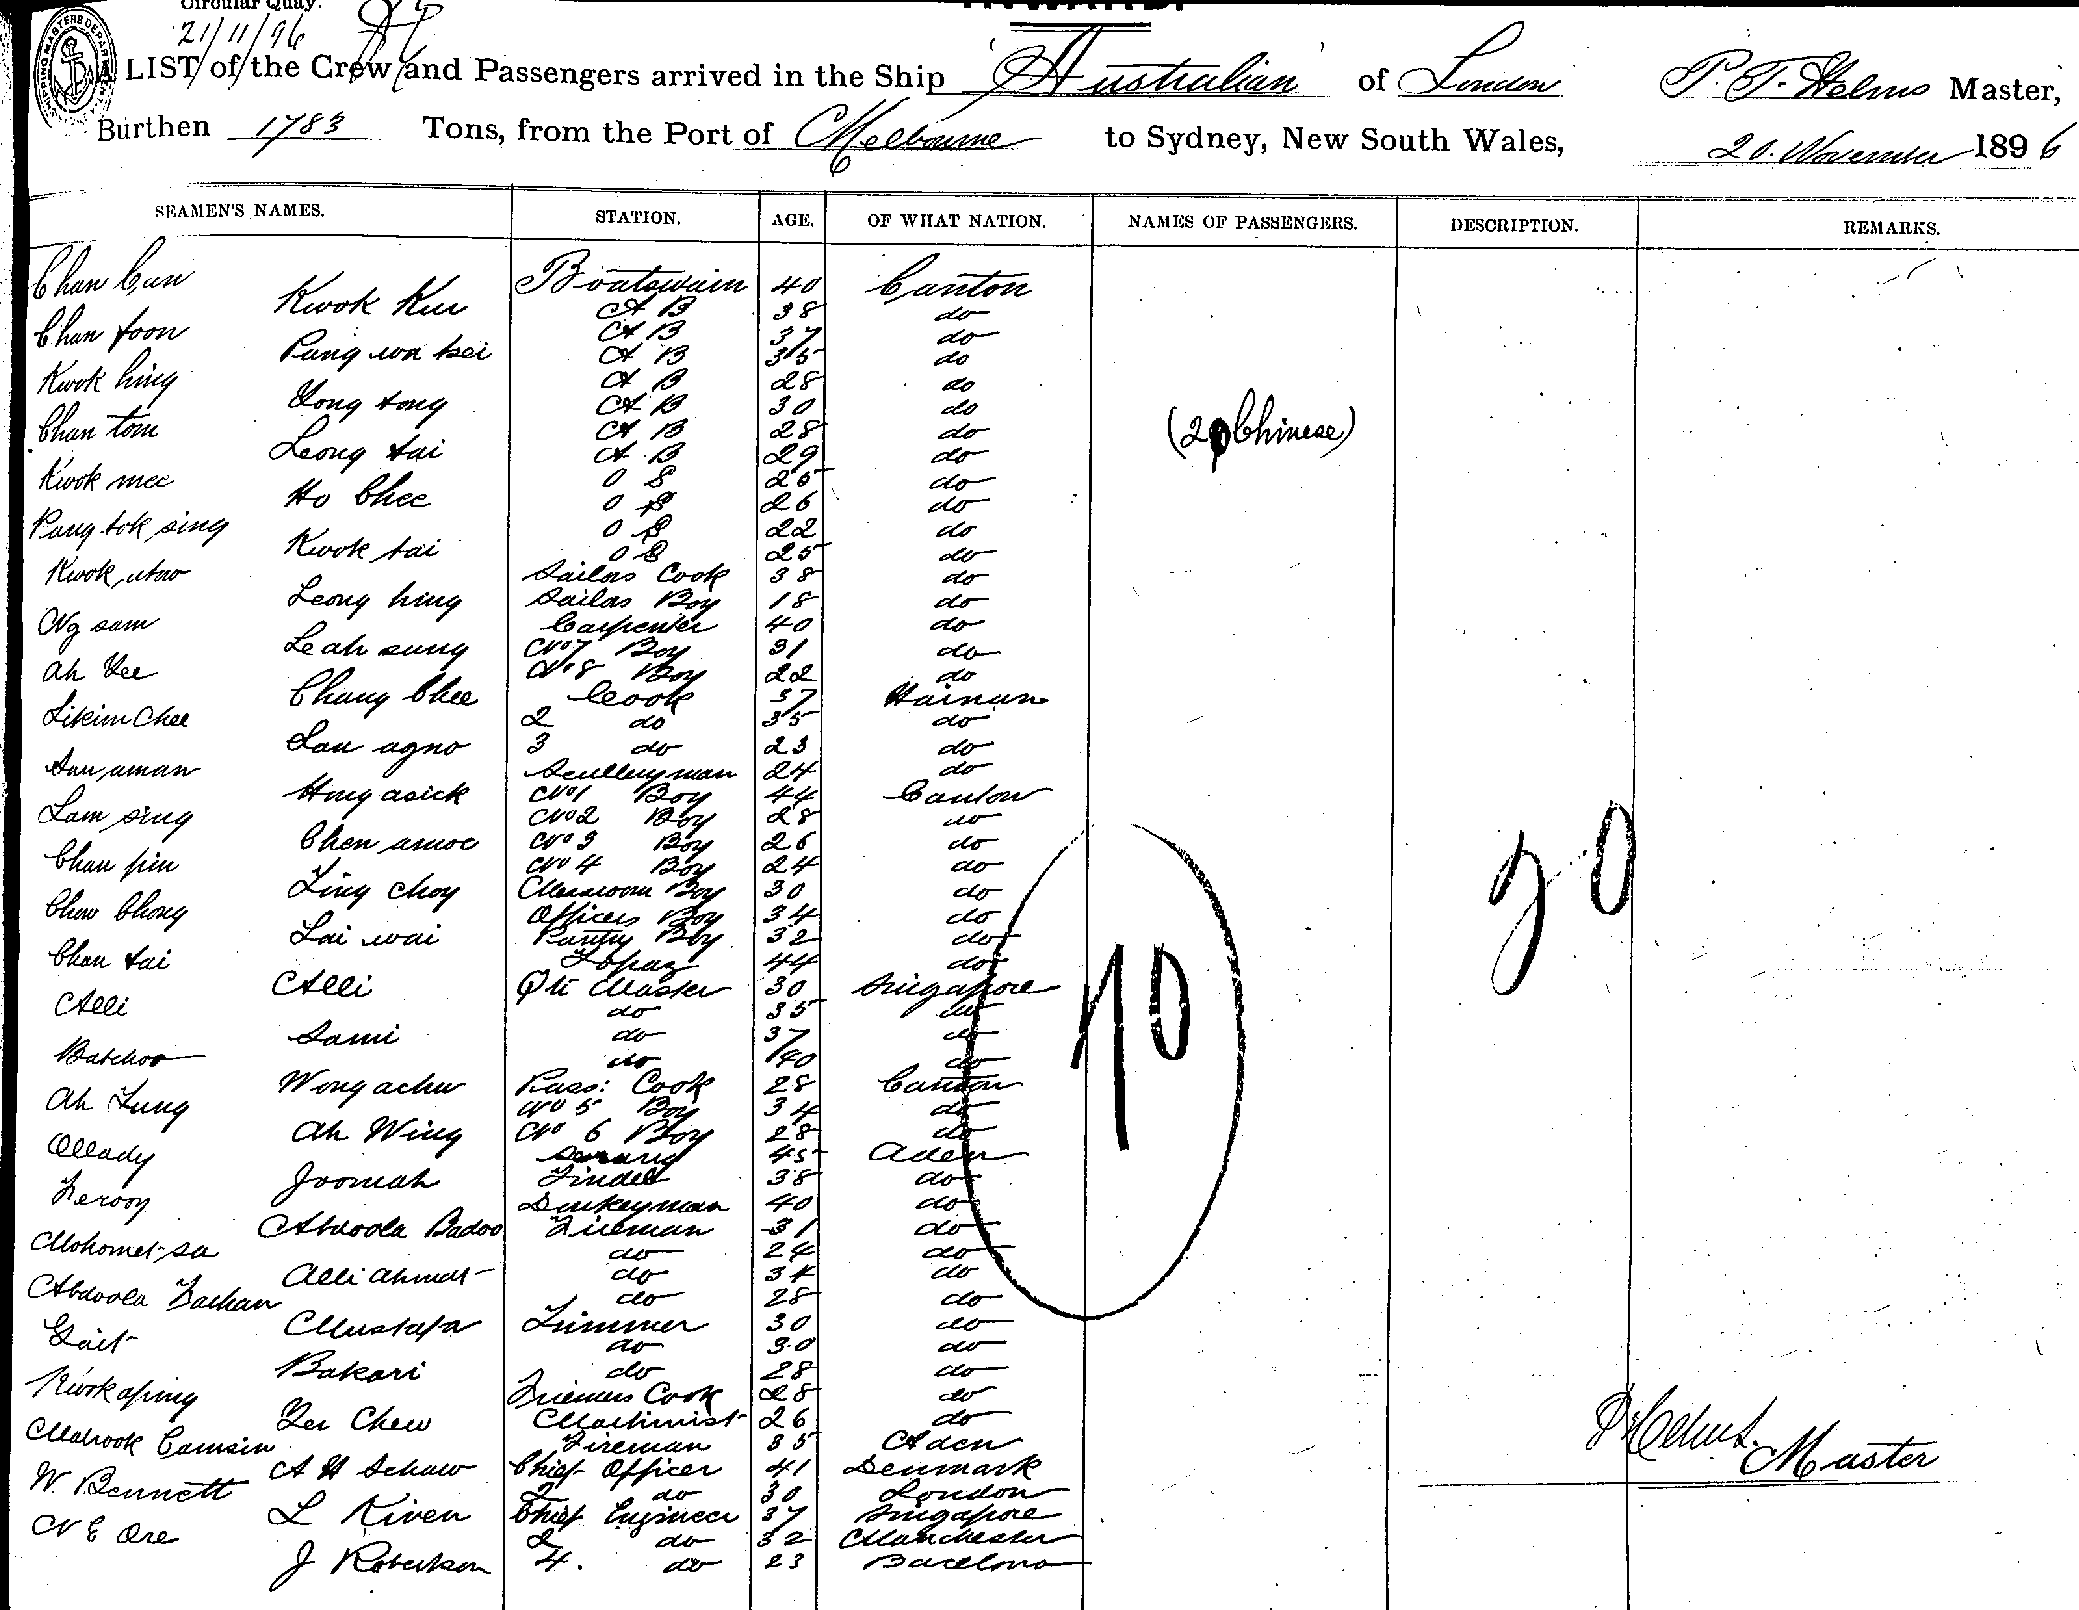 Circular Quay.
INWARD.
21/11/96
A LIST of the Crew and Passengers arrived in the Ship "Australian" of London P. T. Helms Master,
Burthen 1783 Tons, from the Port of Melbourne to Sydney, New South Wales, 20. November 1896
SEAMEN'S NAMES. STATION. AGE. OF WHAT NATION. NAMES OF PASSENGERS. DESCRIPTION. REMARKS.
Chan Cun Boatswain 40 Canton
Kwok Kui A B 38 do
Chan foon A B 37 do
Pang wa kei A B 35 do
Kwok hing A B 28 do
Yong tong A B 30 do
Chan tom A B 28 do
Leong tai A B 29 do
Kwok mee O S 25 do
Ho Chee O S 26 do
Pang tok sing O S 22 do
Kwok tai O S 25 do
Kwok Sailors Cook 38 do
Leong hing Sailors Boy 18 do
Ng sam Carpenter 40 do
Leah sung No 7 Boy 31 do
Ah Yee No 8 Boy 22 do
Chang Chee Cook 37 Hainan
Likim Chee 2 do 35 do
Lau agno 3 do 23 do
aman Scullery man 24 do
Hing asick No 1 Boy 44 Canton
Lam sing No 2 Boy 28 do
Chen amoe No 3 Boy 26 do
Chan pin No 4 Boy 24 do
Ling Choy Messroom Boy 30 do
Chow Chong Officers Boy 34 do
Lai wai Pantry Boy 32 do
Chan tai Topaz 44 do
Alli Qtr Master 30 Singapore
Alli do 35 do
Sami do 37 do
Batchoo do 40 do
Wong achu Pass: Cook 28 Canton
Ah Lung No 5 Boy 34 do
Ah Wing No 6 Boy 28 do
Ollady Serang 45 Aden
Joomah Tindel 38 do
Ferooy Donkeyman 40 do
Abdoola Badoo Fireman 31 do
Mohomet sa do 24 do
Alli Ahmet do 34 do
Abdoola do 28 do
Mustafa Trimmer 30 do
Sait do 30 do
Bakari do 28 do
Kwok aping Firemens Cook 28 do
Yee Chew Machinist 26 do
Mabrook Camsin Fireman 35 Aden
A H Schaw Chief Officer 41 Denmark
W. Bennett 2 do 30 London
L Kiven Chief Engineer 37 Singapore
N E Ore 2 do 32 Manchester
J Robertson 4. do 23 Barcelona
(20 Chinese)
10
20
P Helms. Master